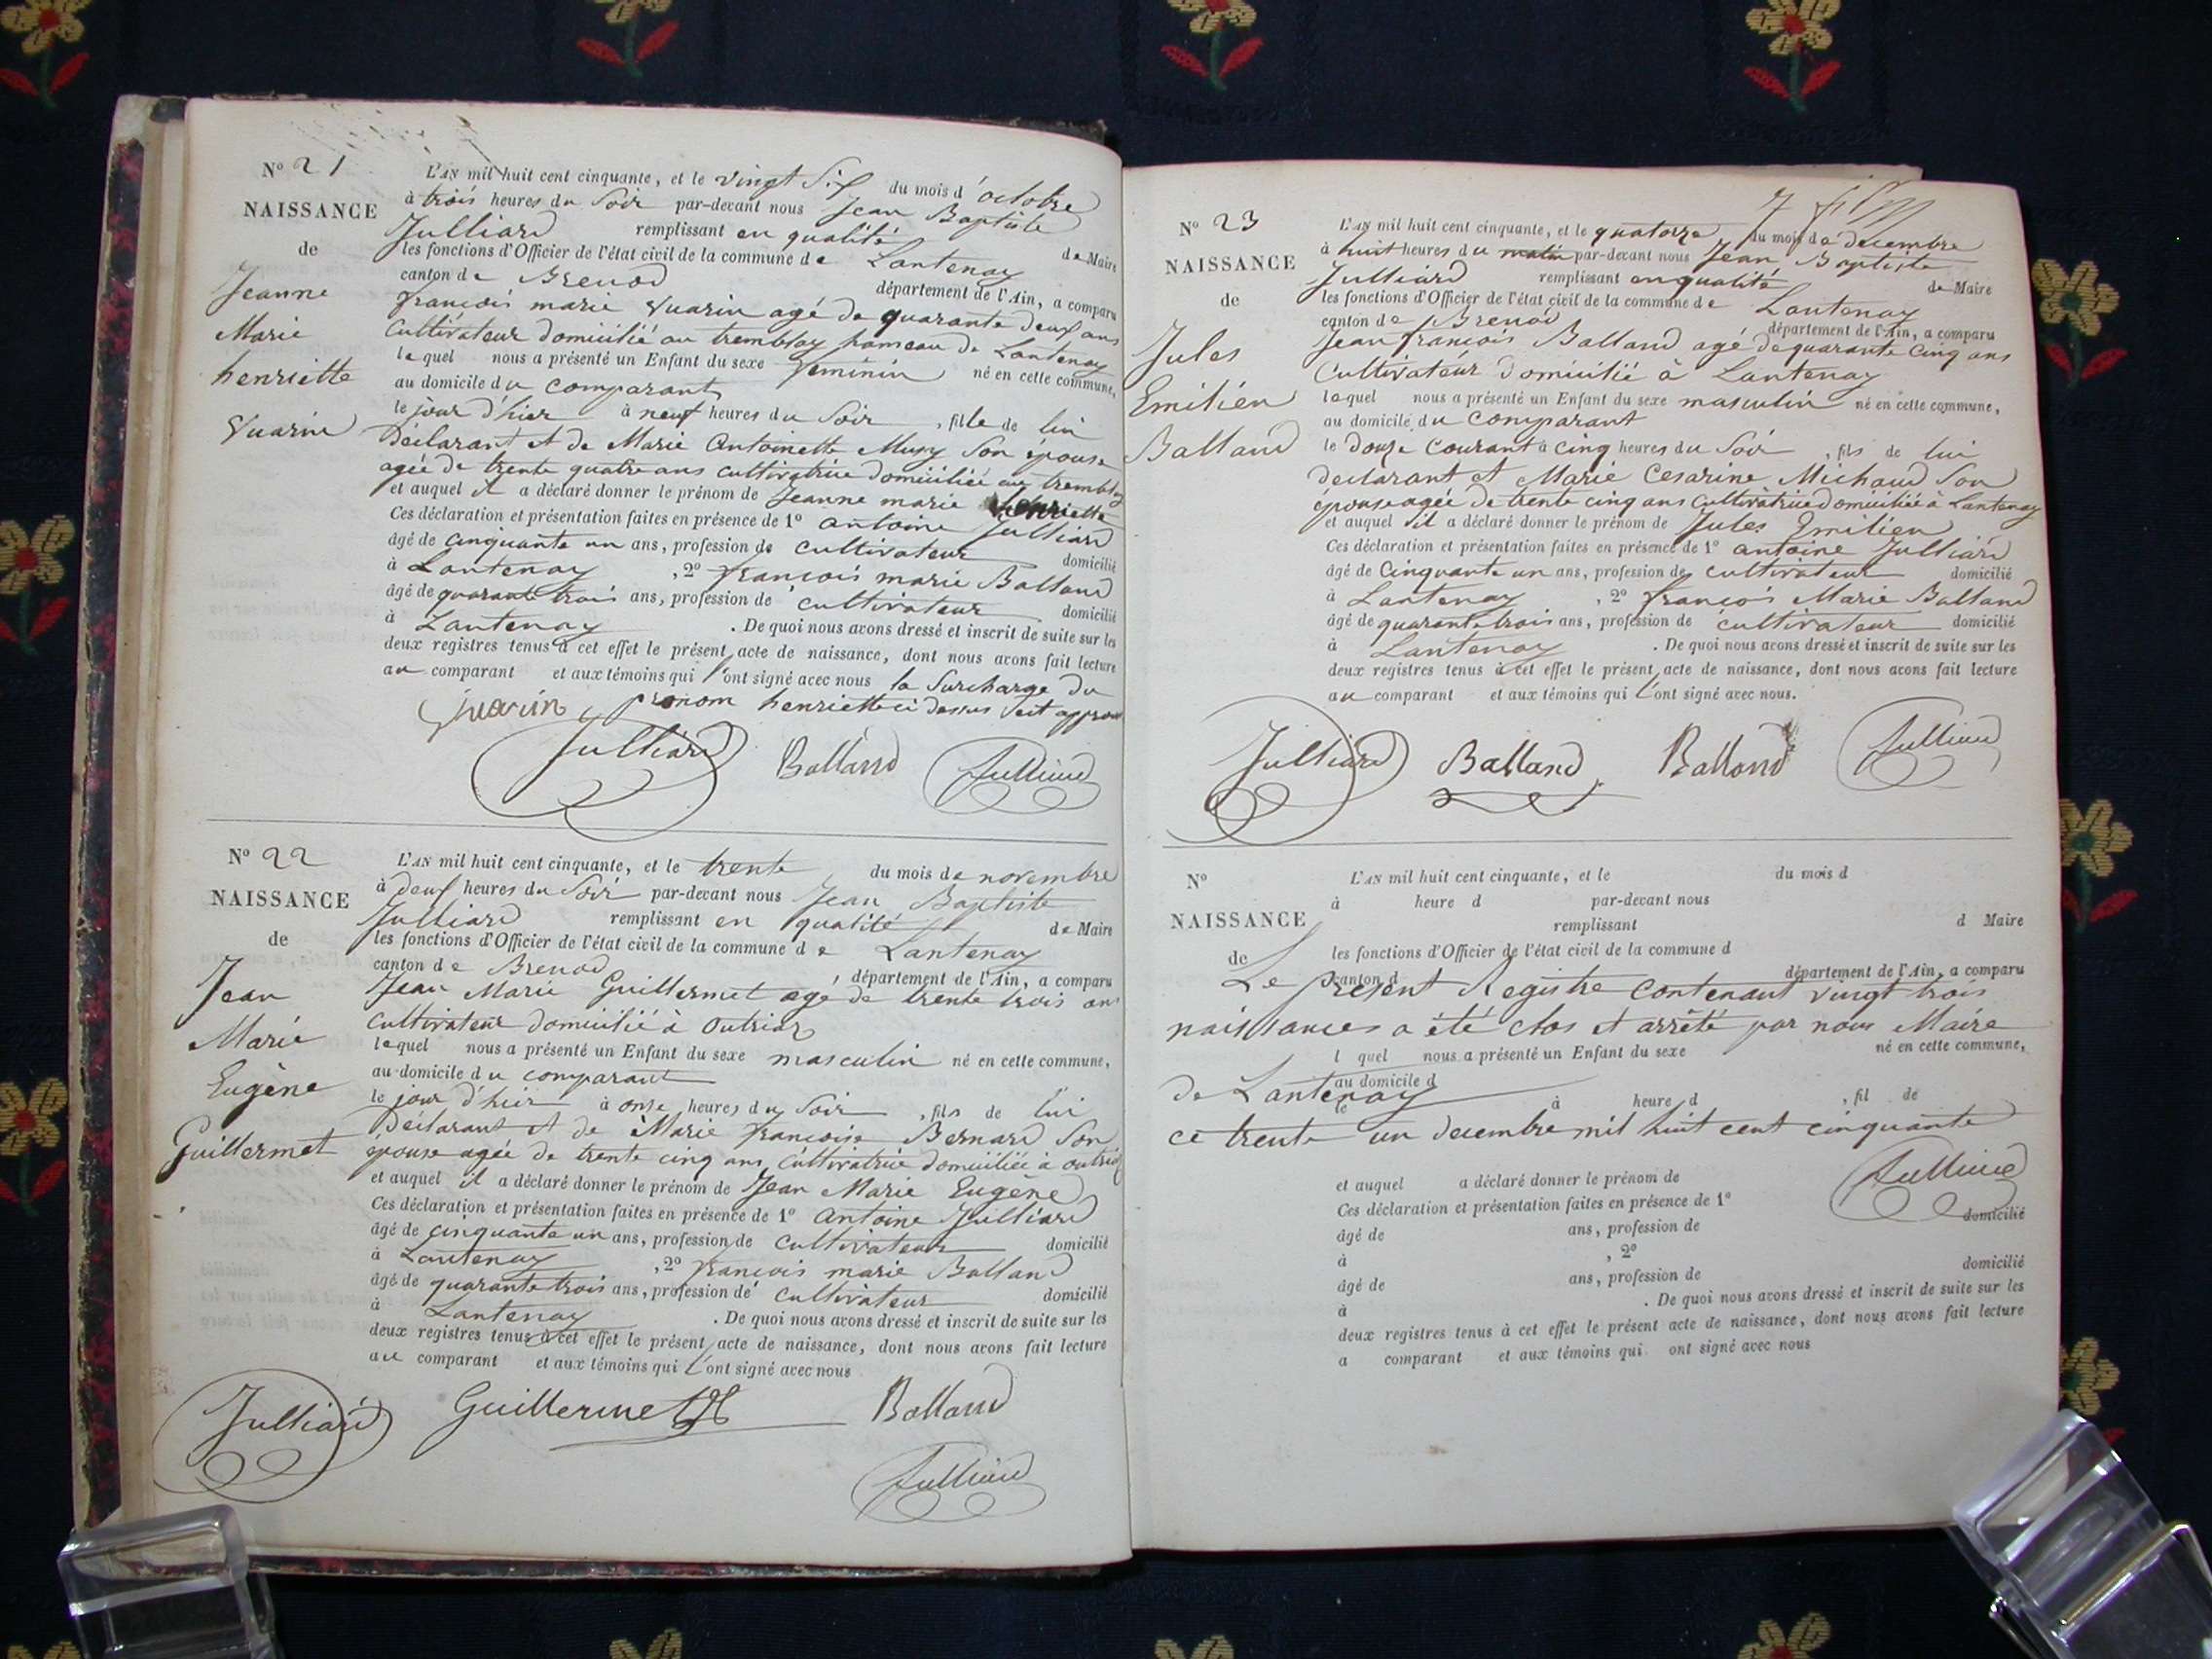 N° 21
NAISSANCE
de
Jeanne
Marie
henriette
Vuarin
L'AN mil huit cent cinquante, et le vingt Six du mois d'octobre
à trois heures du Soir par-devant nous Jean Baptiste
Julliard remplissant en qualité de Maire
les fonctions d'Officier de l'état civil de la commune de Lantenay
canton de Brenod département de l'Ain, a comparu
françois marie Vuarin agé de quarante deux ans
Cultivateur domicilié au tremblay hameau de Lantenay
lequel nous a présenté un Enfant du sexe féminin né en cette commune,
au domicile du comparant
le jour d'hier à neuf heures du Soir, fille de lui
Déclarant et de Marie Antoinette Mury Son épouse
agée de trente quatre ans cultivatrice domiciliée au tremblay
et auquel il a déclaré donner le prénom de Jeanne marie henriette
Ces déclaration et présentation faites en présence de 1° antoine Julliard
âgé de cinquante un ans, profession de cultivateur domicilié
à Lantenay, 2° françois marie Balland
âgé de quarante trois ans, profession de cultivateur domicilié
à Lantenay. De quoi nous avons dressé et inscrit de suite sur les
deux registres tenus à cet effet le présent acte de naissance, dont nous avons fait lecture
au comparant et aux témoins qui l'ont signé avec nous la Surcharge du
prenom henriette ci dessus est approu
Vuarin
Julliard Balland Julliard
N° 22
NAISSANCE
de
Jean
Marie
Eugène
Guillermet
L'AN mil huit cent cinquante, et le trente du mois de novembre
à deux heures du Soir par-devant nous Jean Baptiste
Julliard remplissant en qualité de Maire
les fonctions d'Officier de l'état civil de la commune de Lantenay
canton de Brenod, département de l'Ain, a comparu
Jean Marie Guillermet agé de trente trois ans
Cultivateur domicilié à Outriaz
lequel nous a présenté un Enfant du sexe masculin né en cette commune,
au domicile du comparant
le jour d'hier à onze heures du Soir, fils de lui
Déclarant et de Marie françoise Bernard Son
épouse agée de trente cinq ans Cultivatrice domiciliée à outriaz
et auquel il a déclaré donner le prénom de Jean Marie Eugène
Ces déclaration et présentation faites en présence de 1° Antoine Julliard
âgé de cinquante un ans, profession de cultivateur domicilié
à Lantenay, 2° françois marie Balland
âgé de quarante trois ans, profession de cultivateur domicilié
à Lantenay. De quoi nous avons dressé et inscrit de suite sur les
deux registres tenus à cet effet le présent acte de naissance, dont nous avons fait lecture
au comparant et aux témoins qui l'ont signé avec nous
Julliard Guillermet Balland
Julliard
N° 23
NAISSANCE
de
Jules
Emilien
Balland
L'AN mil huit cent cinquante, et le quatorze du mois de décembre
à huit heures du matin par-devant nous Jean Baptiste
Julliard remplissant en qualité de Maire
les fonctions d'Officier de l'état civil de la commune de Lantenay
canton de Brenod département de l'Ain, a comparu
Jean françois Balland agé de quarante cinq ans
Cultivateur domicilié à Lantenay
lequel nous a présenté un Enfant du sexe masculin né en cette commune,
au domicile du comparant
le douze courant à cinq heures du Soir, fils de lui
declarant et Marie Cesarine Michaud Son
épouse agée de trente cinq ans cultivatrice domiciliée à Lantenay
et auquel il a déclaré donner le prénom de Jules Emilien
Ces déclaration et présentation faites en présence de 1° antoine Julliard
âgé de Cinquante un ans, profession de cultivateur domicilié
à Lantenay, 2° françois Marie Balland
âgé de quarante trois ans, profession de cultivateur domicilié
à Lantenay. De quoi nous avons dressé et inscrit de suite sur les
deux registres tenus à cet effet le présent acte de naissance, dont nous avons fait lecture
au comparant et aux témoins qui l'ont signé avec nous.
Julliard Balland Balland Julliard
N°
NAISSANCE
de
L'AN mil huit cent cinquante, et le du mois d
à heure d par-devant nous
remplissant d Maire
les fonctions d'Officier de l'état civil de la commune d
canton d département de l'Ain, a comparu
Le présent Registre contenant vingt trois
naissances a été clos et arrêté par nous Maire
l quel nous a présenté un Enfant du sexe né en cette commune,
au domicile d
de Lantenay
le à heure d, fil de
ce trente un decembre mil huit cent cinquante
Julliard
et auquel a déclaré donner le prénom de
Ces déclaration et présentation faites en présence de 1°
domicilié
âgé de ans, profession de
à, 2°
âgé de ans, profession de domicilié
à. De quoi nous avons dressé et inscrit de suite sur les
deux registres tenus à cet effet le présent acte de naissance, dont nous avons fait lecture
a comparant et aux témoins qui ont signé avec nous